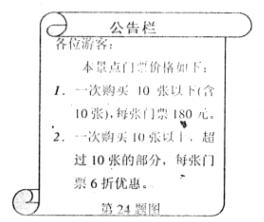 公告栏
各位游客：
本景点门票价格如下：
1．一次购买 10 张以下(含
10张)，每张门票180元。
2．一次购买10张以上，超
过10张的部分，每张门
票6折优惠。
第24题图